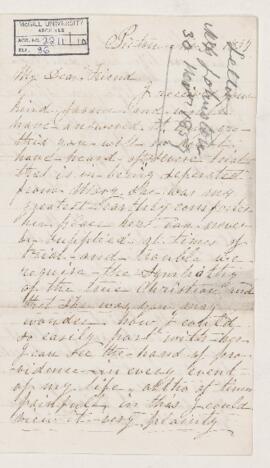 McGILL UNIVERSITY
ARCHIVES
ACC. NO. 2211 | 10
REF. 36
Letter
30 Nov 1859
Pictou
My Dear Friend
I received your
kind favour and would
have answered it
this you will no
have heard of severe trial
that is in being separated
from Mary She was my
greatest Earthly comforter
her place here can never
be supplied at times of
trial and trouble we
require the Sympathy
of the true Christian and
that She was you may
wonder how I could
so easily part with her
I can see the hand of pro
vidence in every event
of my life altho of times
painful in this I could
view it very plainly